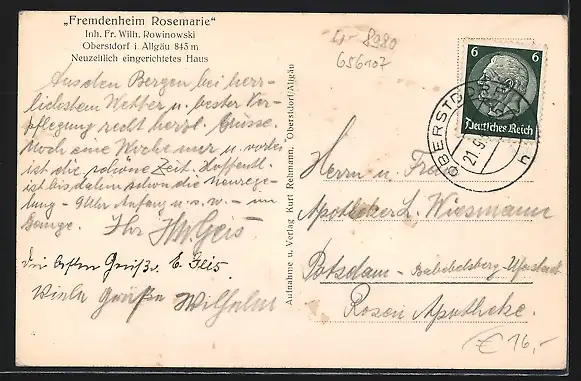 „Fremdenheim Rosemarie"
Inh. Fr. Wilh. Rowinowski
Oberstdorf i. Allgäu 843 m
Neuzeitlich eingerichtetes Haus
Aus den Bergen bei herr-
lichstem Wetter u. bester Ver-
pflegung recht herzl. Grüsse.
Noch eine Woche nur u. vorbei
ist die schöne Zeit. Hoffentl.
ist bis dahin schon die Neurege-
lung - Uhr Anfang u.s.w. - im
Gange. Ihr Geis
Grüße E. Geis.
Viele Grüße Wilhelm
Aufnahme u. Verlag Kurt Rehmann, Oberstdorf/Allgäu
8980
656107
6 6
Deutsches Reich
OBERSTDORF
21.9.
h
Herrn u. Frau
Apotheker L. Wiesmann
Potsdam - Babelsberg-Ufastadt
Rosen Apotheke.
€ 16,-